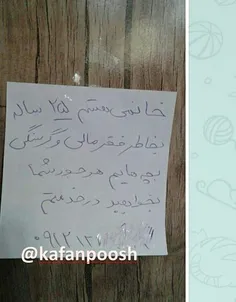 خانمی هستم ۲۵ ساله
بخاطر فقر مالی و گرسنگی
بچه هایم هر جور شما
بخواهید در خدمتم
۰۹۱۲۱۲
@kafanpoosh